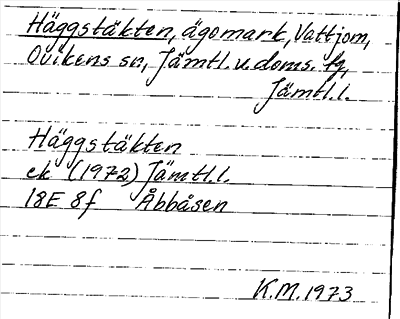 Häggstäkten, ägomark, Vattjom,
Ovikens sn, Jämtl. v. doms. fg,
Jämtl. l.
Häggstäkten
ek (1972) Jämtl. l.
18E 8f Åbbåsen
K.M. 1973